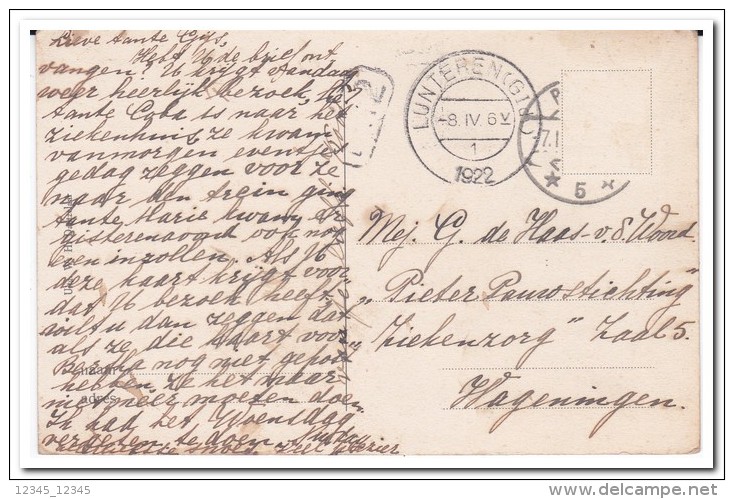 Lieve tante Gijs,
Hebt U de brief ont
vangen? U krijgt vandaag
weer heerlijk bezoek,
tante Coba is naar het
ziekenhuis, ze kwam
vanmorgen eventjes
gedag zeggen voor ze
naar den trein ging
tante Marie kwam er
gisterenavond ook nog
even inzollen. Als U
deze kaart krijgt voor
dat U bezoek heeft,
wilt u dan zeggen dat
als ze die kaart voor
nog niet gepost
hebben, ze het maar
niet meer moeten doen.
Ik had het Woensdag
vergeten te doen
veel plezier
LUNTEREN (GLD)
-8.IV.6V
1
1922
5
Mej. G. de Haas v.d. Woord
„Pieter Pauwstichting"
„Ziekenzorg" Zaal 5.
Wageningen.
adres
12345_12345
© delcampe.net